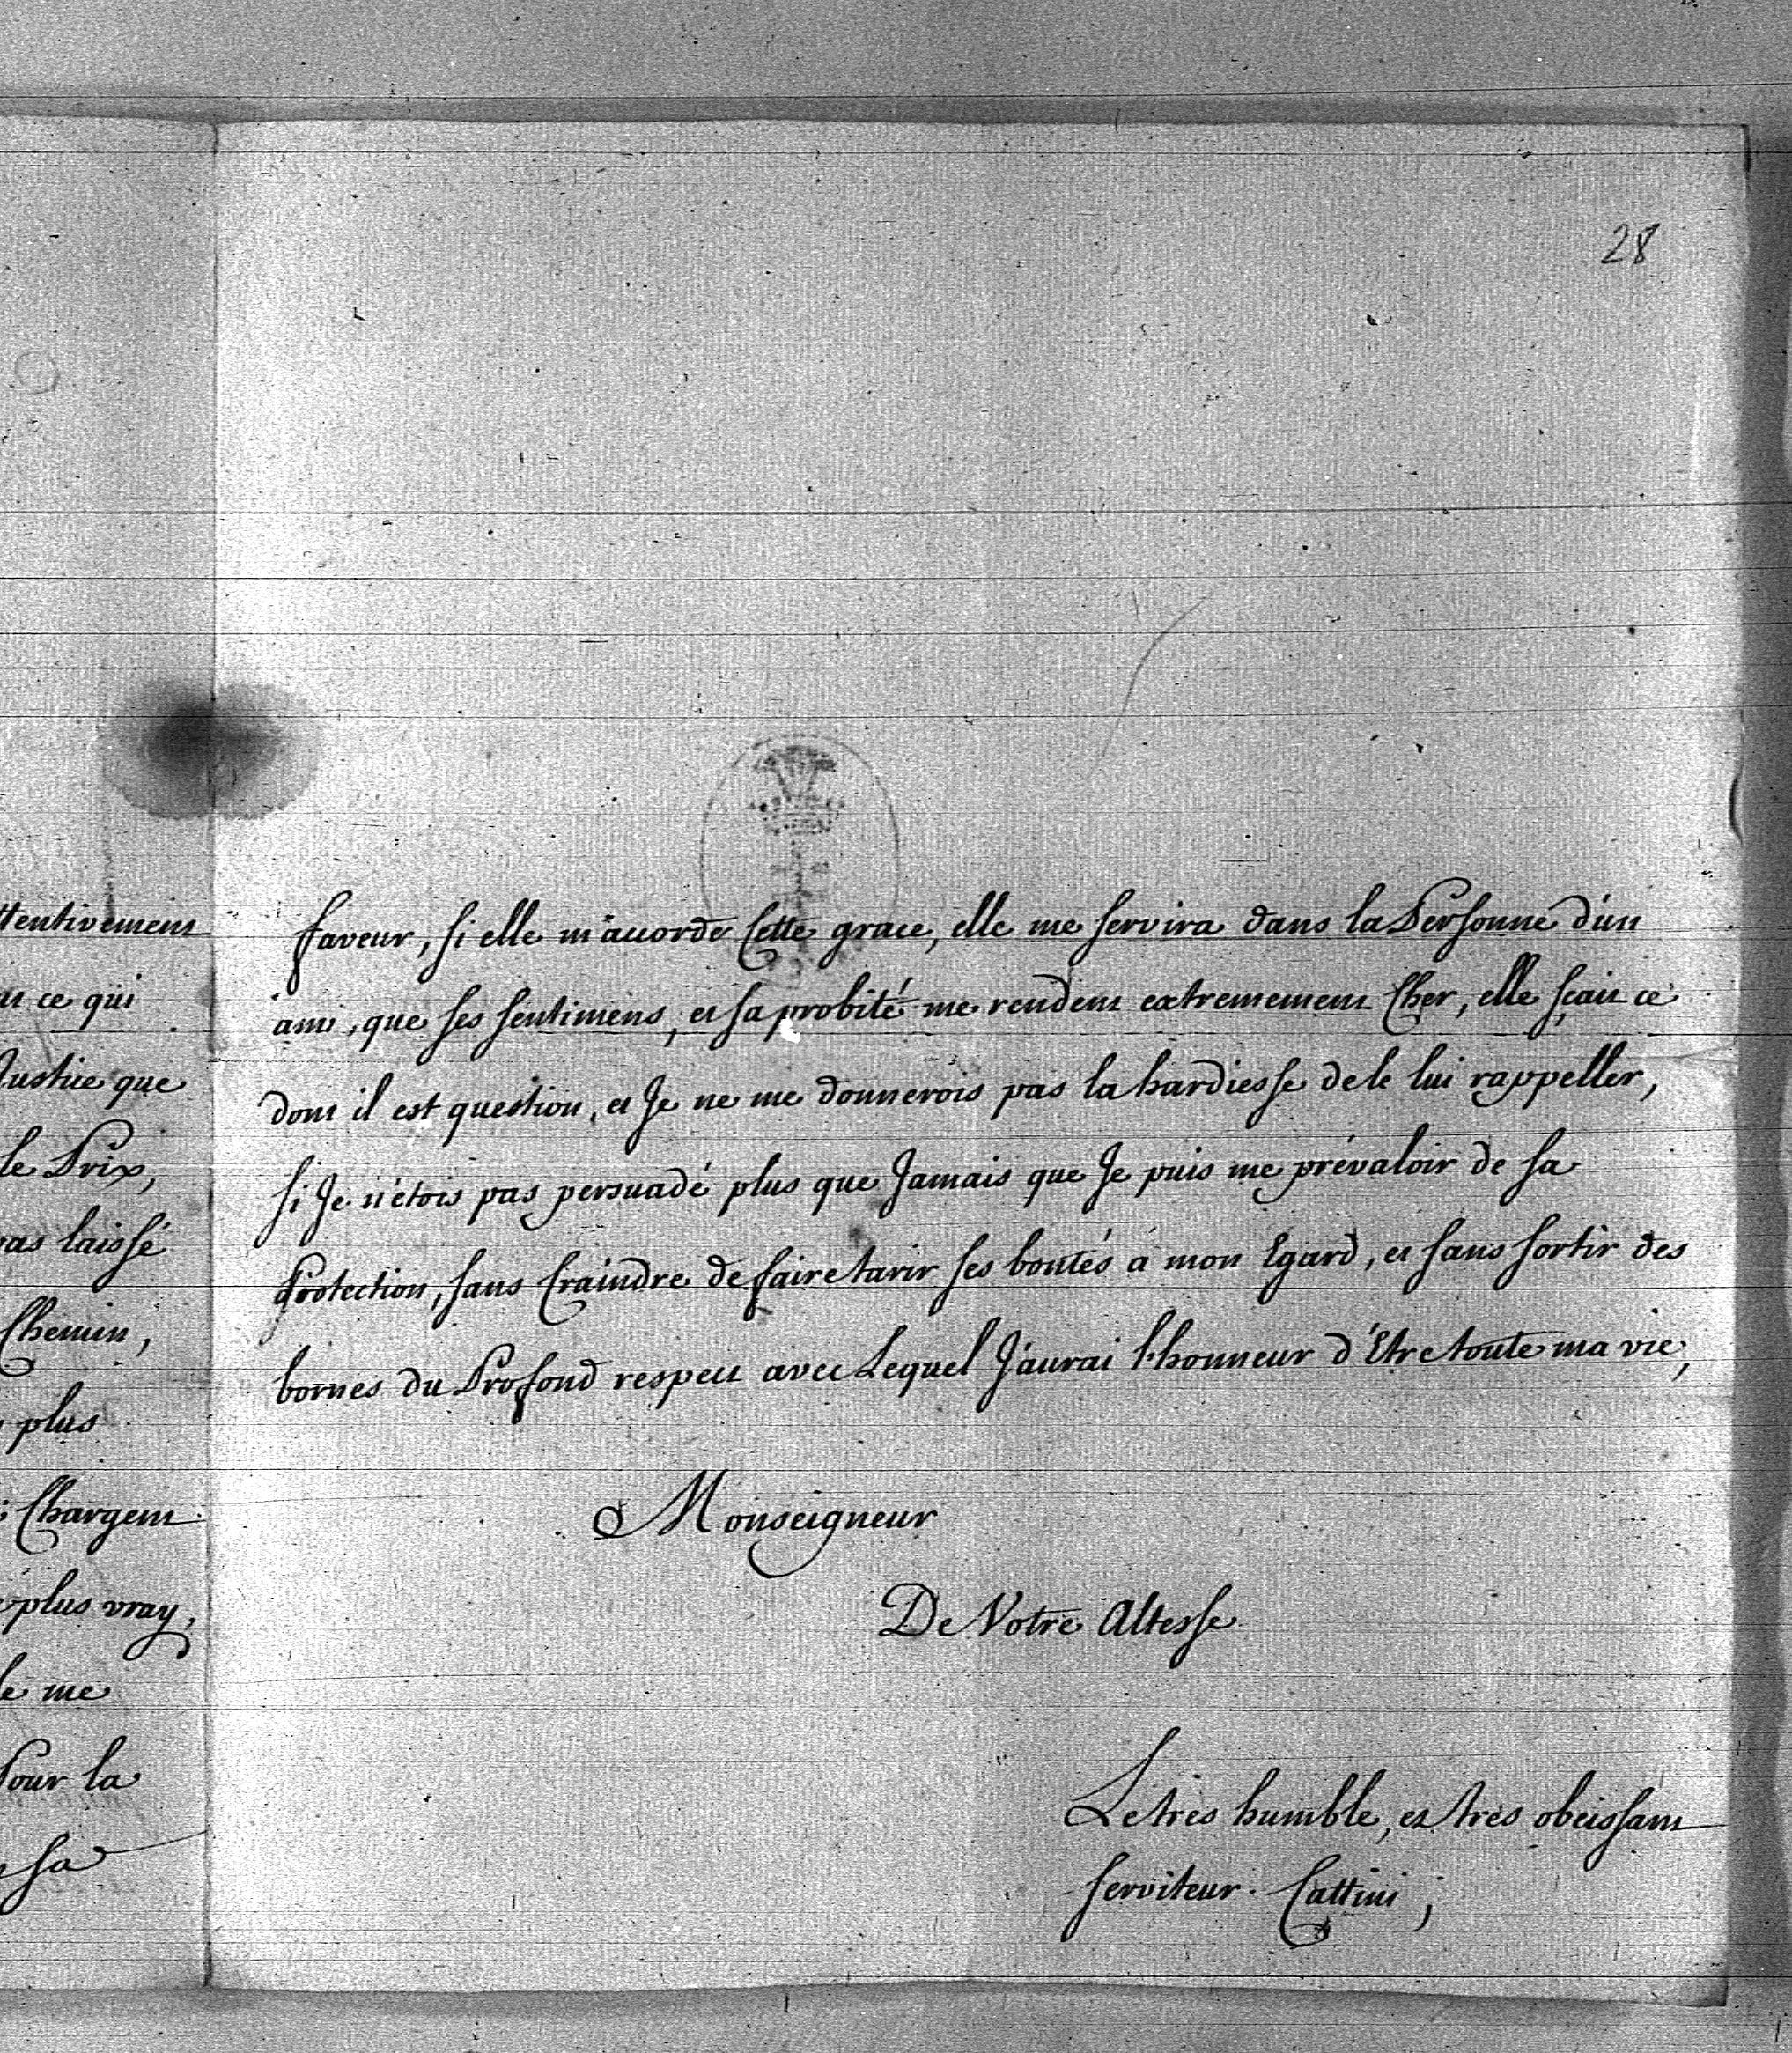 28
ttentivement
ce qui
Justice que
le Prix,
pas laissé
Chemin,
plus
Chargent
plus vray,
me
Pour la
sa
faveur, si elle m'accorde Cette grace, elle me servira dans la Personne d'un
ami, que ses sentimens, et sa probité me rendent extremement Cher, elle sçait ce
dont il est question, et Je ne me donnerois pas la hardiesse de le lui rappeller,
si Je n'etois pas persuadé plus que Jamais que Je puis me prévaloir de sa
Protection, sans Craindre de faire tarir ses bontés a mon Egard, et sans sortir des
bornes du Profond respect avec Lequel J'aurai l'honneur d'Etre toute ma vie,
Monseigneur
De Votre Altesse
Le tres humble, et tres obeissant
serviteur. Cattini;